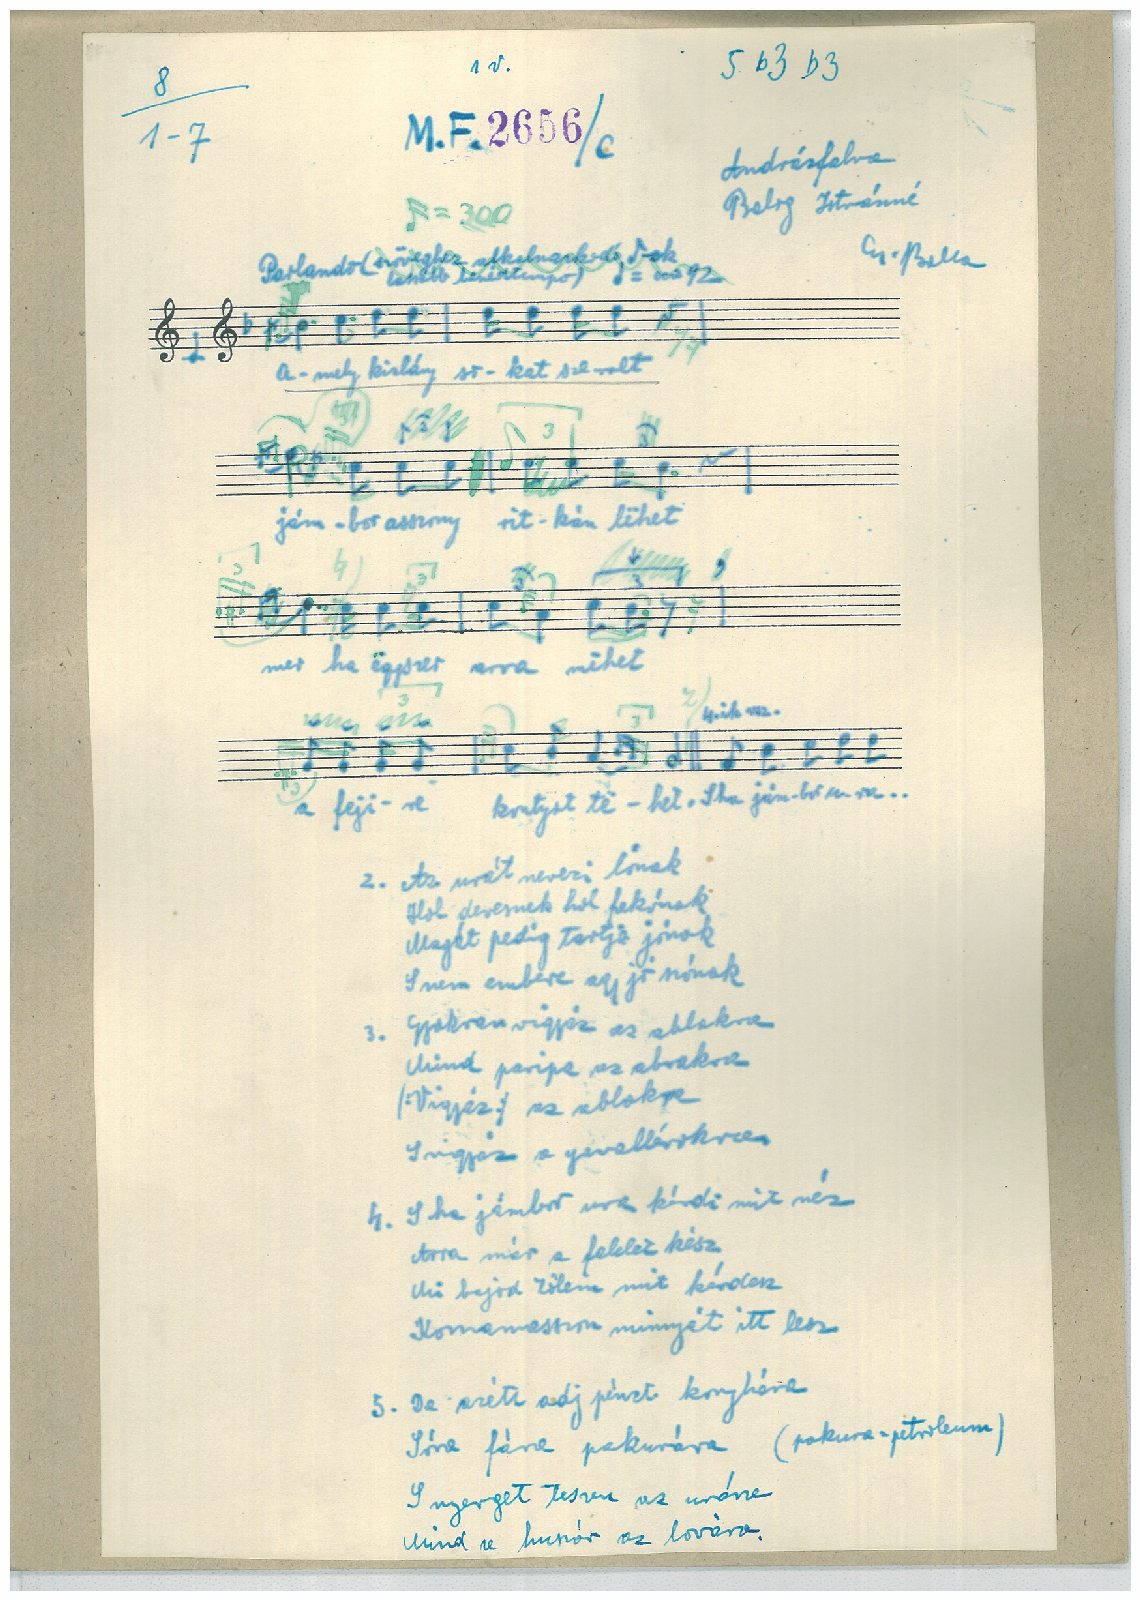 8
1-7
1 v.
5 b3 b3
M.F. 2656/c
Andrásfalva
Balog Istvánné
Gy. Balla
♪ = 300
Parlando (szöveghez alkalmazkodó, ♪-ok
♩ = 92
A-mely kislány so-kat szē-rett
jám-bor asszony rit-kán lëhet
mer ha ëgyszer arra mëhet
a feji-re kontyot të-het. S ha jám-bor u-ra..
2. Az urát nevezi lónak
Hol deresnek hol fakónak
Magát pedig tartja jónak
S nem embere egy jó szónak
3. Gyakran vigyáz az ablakra
Mind paripa az abrakra
/:Vigyáz:/ az ablakra
S vigyáz a gavallérokra
4. S ha jámbor ura kérdi mit néz
Arra már a felelet kész
Mi bajod tőlem mit kérdesz
Komámasszon minnyát itt lesz
5. De azétt adj pénzt konyhára
Sóra fára pakurára (pakura=petróleum)
S nyerget teszen az urára
Mind a huszár az lovára.